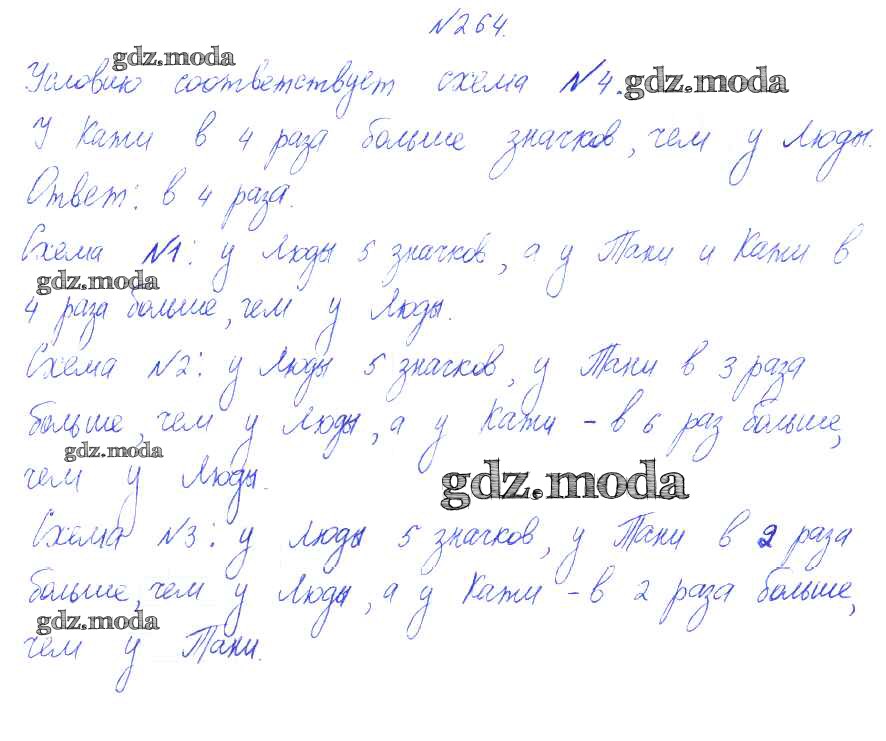 №264.
gdz.moda
Условию соответствует схема №4. gdz.moda
У Кати в 4 раза больше значков, чем у Люды.
Ответ: в 4 раза.
Схема №1: у Люды 5 значков, а у Тани и Кати в
gdz.moda
4 раза больше, чем у Люды.
Схема №2: у Люды 5 значков, у Тани в 3 раза
больше, чем у Люды, а у Кати - в 6 раз больше,
gdz.moda
чем у Люды.
gdz.moda
Схема №3: у Люды 5 значков, у Тани в 2 раза
больше, чем у Люды, а у Кати - в 2 раза больше,
gdz.moda
чем у Тани.